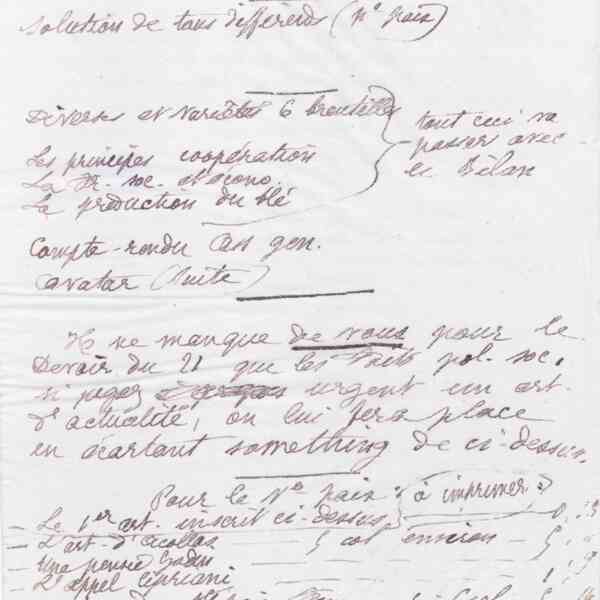 solution de tous différends (N° paix)
Diverses et variétés 6 broutilles
Les principes coopération
La . soc. et écono.
La production du blé
tout ceci va
passer avec
le Bilan
Compte-rendu Ass gen.
Avatar (Suite)
Il ne manque de vous pour le
Devoir du 21 que les Faits pol. soc.
si jugez urgent un art.
d'actualité, on lui fera place
en écartant something de ci-dessus.
Pour le N° paix : à imprimer :
- Le 1er art. inscrit ci-dessus
- L'art. d'Acollas 5 col environ - 5
- Une pensée Godin
- L'appel Cipriani